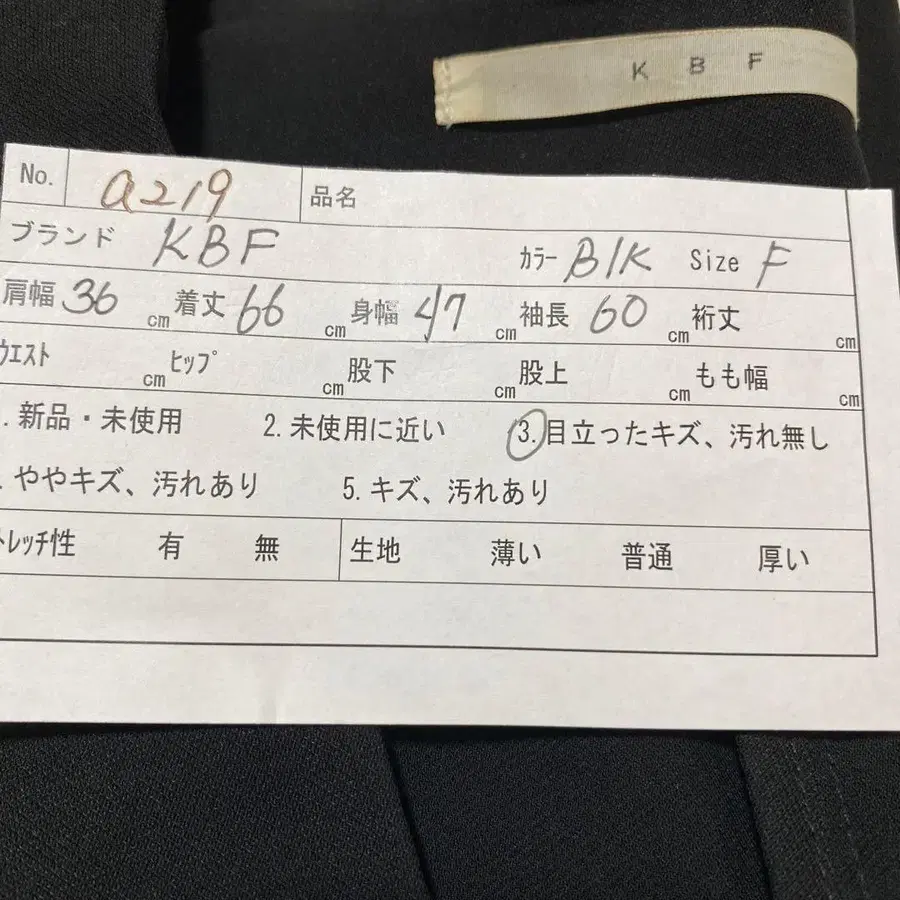 K B F
No. a219 品名
ブランド KBF カラー Blk Size F
肩幅 36 cm 着丈 66 cm 身幅 47 cm 袖長 60 cm 裄丈 cm
ウエスト cm ヒップ cm 股下 cm 股上 cm もも幅 cm
. 新品・未使用 2. 未使用に近い 3. 目立ったキズ、汚れ無し
. ややキズ、汚れあり 5. キズ、汚れあり
トレッチ性 有 無 生地 薄い 普通 厚い